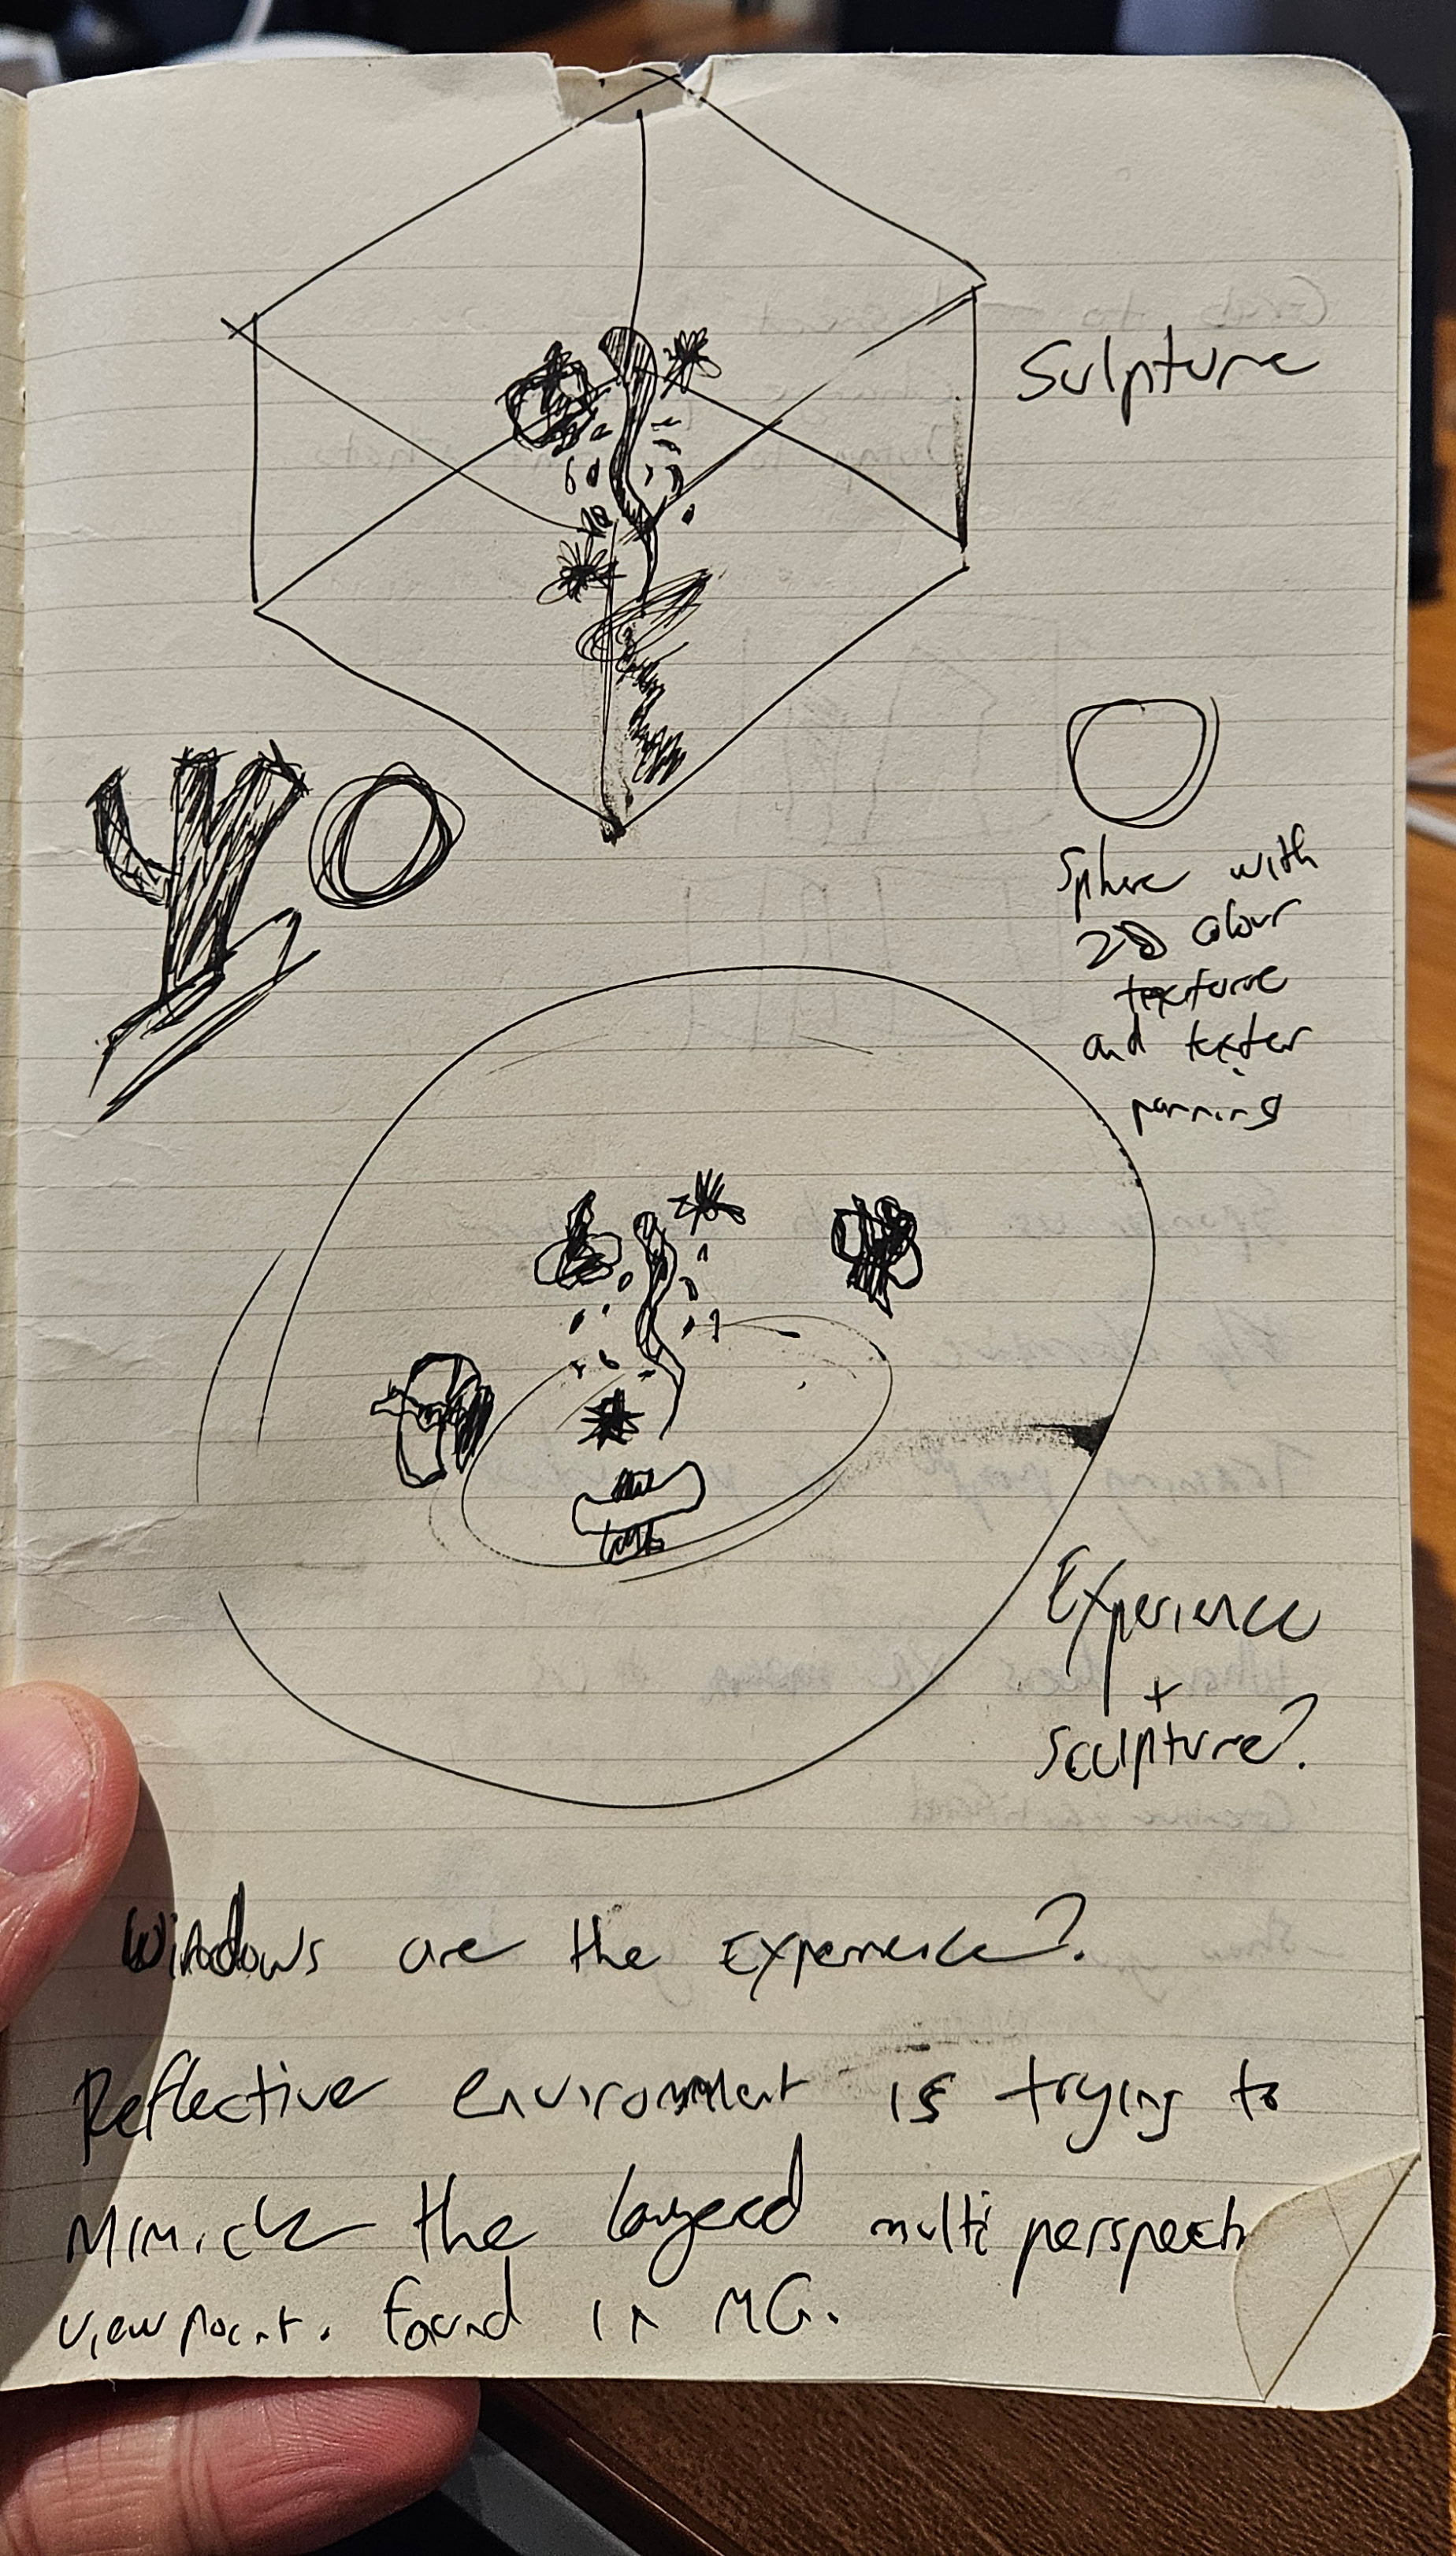 Sulpture
YO
Sphere with
2D colour
texture
and texter
panning
Experience
+
Sculpture?
Windows are the Experience?
Reflective environment is trying to
Mimick the layered multi perspectiv
viewpoint. found in MG.